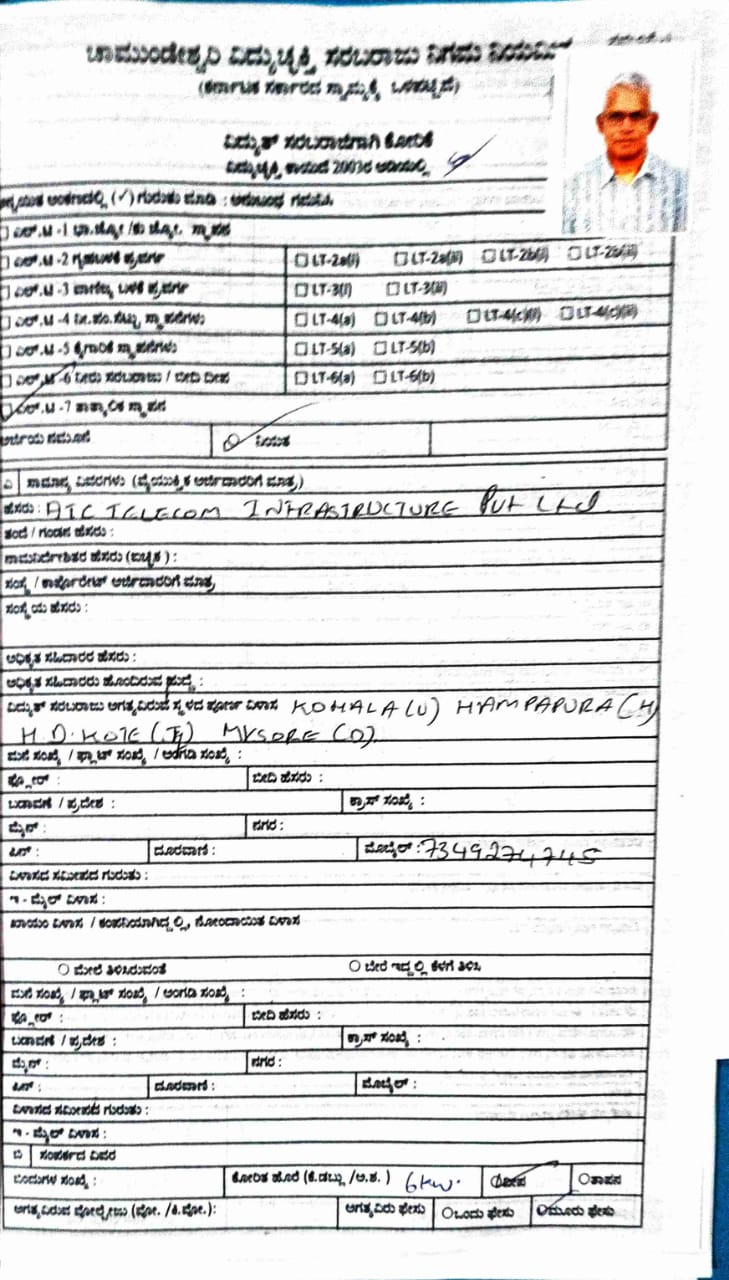 ಚಾಮುಂಡೇಶ್ವರಿ ವಿದ್ಯುಚ್ಛಕ್ತಿ ಸರಬರಾಜು ನಿಗಮ ನಿಯಮಿತ
(ಕರ್ನಾಟಕ ಸರ್ಕಾರದ ಸ್ವಾಮ್ಯಕ್ಕೆ ಒಳಪಟ್ಟಿದೆ)
ವಿದ್ಯುತ್ ಸರಬರಾಜಿಗಾಗಿ ಕೋರಿಕೆ
ವಿದ್ಯುಚ್ಛಕ್ತಿ ಕಾಯಿದೆ 2003ರ ಅಡಿಯಲ್ಲಿ
(✓) ಗುರುತು ಮಾಡಿ :
ಎಲ್.ಟಿ -1
ಎಲ್.ಟಿ -2 ಗೃಹಬಳಕೆ LT-2a(i) LT-2a(ii) LT-2b(i) LT-2b(ii)
ಎಲ್.ಟಿ -3 LT-3(i) LT-3(ii)
ಎಲ್.ಟಿ -4 LT-4(a) LT-4(b) LT-4(c)(i) LT-4(c)(ii)
ಎಲ್.ಟಿ -5 LT-5(a) LT-5(b)
ಎಲ್.ಟಿ -6 ನೀರು ಸರಬರಾಜು / ಬೀದಿ ದೀಪ LT-6(a) LT-6(b)
ಎಲ್.ಟಿ -7 ತಾತ್ಕಾಲಿಕ
ನಿಯತ
ಎ ಸಾಮಾನ್ಯ ವಿವರಗಳು (ವೈಯುಕ್ತಿಕ ಅರ್ಜಿದಾರರಿಗೆ ಮಾತ್ರ)
ಹೆಸರು : ATC TELECOM INFRASTRUCTURE Pvt Ltd
ತಂದೆ / ಗಂಡನ ಹೆಸರು :
ನಾಮನಿರ್ದೇಶಿತರ ಹೆಸರು (ಐಚ್ಛಿಕ) :
ಸಂಸ್ಥೆ / ಕಾರ್ಪೊರೇಟ್ ಅರ್ಜಿದಾರರಿಗೆ ಮಾತ್ರ
ಸಂಸ್ಥೆಯ ಹೆಸರು :
ಅಧಿಕೃತ ಸಹಿದಾರರ ಹೆಸರು :
ಅಧಿಕೃತ ಸಹಿದಾರರು ಹೊಂದಿರುವ ಹುದ್ದೆ :
ವಿದ್ಯುತ್ ಸರಬರಾಜು ಅಗತ್ಯವಿರುವ ಸ್ಥಳದ ಪೂರ್ಣ ವಿಳಾಸ KOHALA(V) HAMPAPURA(H)
H.D.KOTE(T) MYSORE(D)
ಮನೆ ಸಂಖ್ಯೆ / ಫ್ಲಾಟ್ ಸಂಖ್ಯೆ / ಅಂಗಡಿ ಸಂಖ್ಯೆ :
ಫ್ಲೋರ್ : ಬೀದಿ ಹೆಸರು :
ಬಡಾವಣೆ / ಪ್ರದೇಶ : ಕ್ರಾಸ್ ಸಂಖ್ಯೆ :
ಮೈನ್ : ನಗರ :
ಪಿನ್ : ದೂರವಾಣಿ : ಮೊಬೈಲ್ : 7349274745
ವಿಳಾಸದ ಸಮೀಪದ ಗುರುತು :
ಇ - ಮೈಲ್ ವಿಳಾಸ :
ಖಾಯಂ ವಿಳಾಸ / ಕಂಪನಿಯಾಗಿದ್ದಲ್ಲಿ, ನೋಂದಾಯಿತ ವಿಳಾಸ
ಮೇಲೆ ತಿಳಿಸಿರುವಂತೆ ಬೇರೆ ಇದ್ದಲ್ಲಿ ಕೆಳಗೆ ತಿಳಿಸಿ
ಮನೆ ಸಂಖ್ಯೆ / ಫ್ಲಾಟ್ ಸಂಖ್ಯೆ / ಅಂಗಡಿ ಸಂಖ್ಯೆ :
ಫ್ಲೋರ್ : ಬೀದಿ ಹೆಸರು :
ಬಡಾವಣೆ / ಪ್ರದೇಶ : ಕ್ರಾಸ್ ಸಂಖ್ಯೆ :
ಮೈನ್ : ನಗರ :
ಪಿನ್ : ದೂರವಾಣಿ : ಮೊಬೈಲ್ :
ವಿಳಾಸದ ಸಮೀಪದ ಗುರುತು :
ಇ - ಮೈಲ್ ವಿಳಾಸ :
ಬಿ ಸಂಪರ್ಕದ ವಿವರ
ಬಿಂದುಗಳ ಸಂಖ್ಯೆ : ಕೋರಿಕೆ ಹೊರೆ (ಕಿ.ಡಬ್ಲ್ಯು /ಅ.ಶ. ) 6kw. ದೀಪ ತಾಪನ
ಅಗತ್ಯವಿರುವ ವೋಲ್ಟೇಜು (ವೋ. /ಕಿ.ವೋ.): ಅಗತ್ಯವಿರು ಫೇಸು ಒಂದು ಫೇಸು ಮೂರು ಫೇಸು